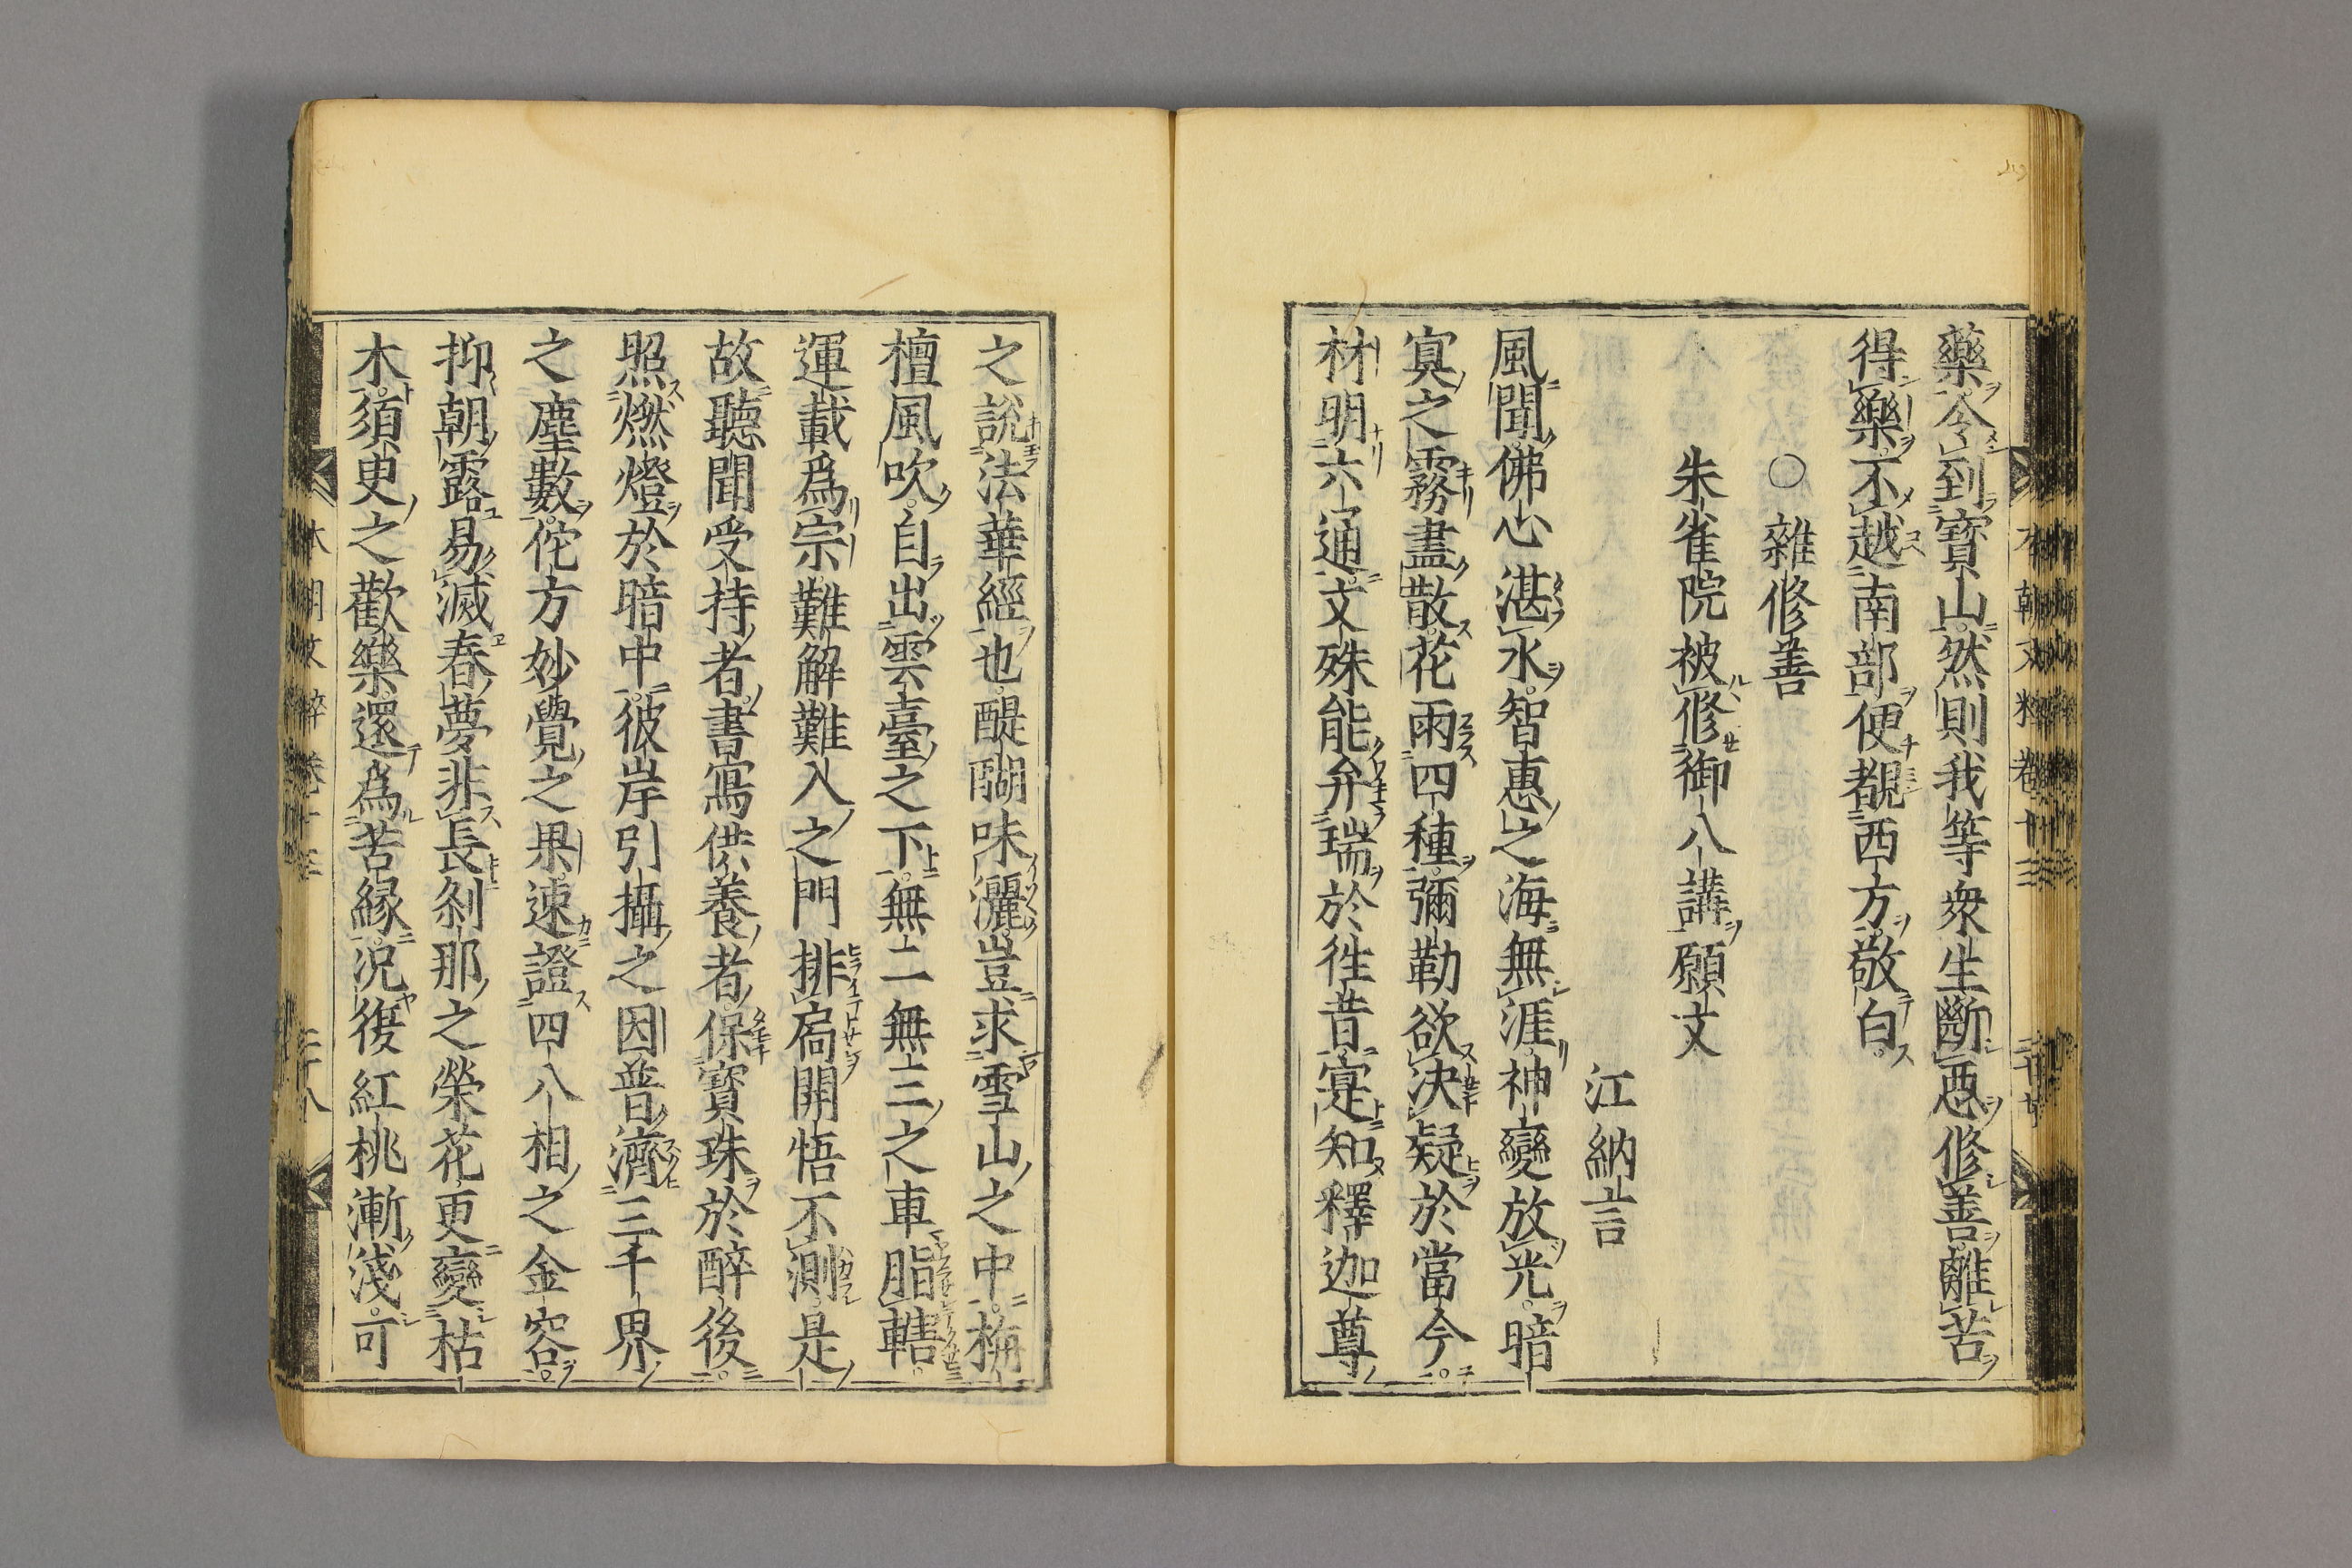 藥令到寶山然則我等衆生斷惡修善離苦
得樂不越南部便覩西方敬白
○雜修善
朱雀院被修御八講願文
江納言
風聞佛心湛水智惠之海無涯神變放光暗
寘之霧盡散花雨四種彌勒欲决疑於當今
材明六通文殊能弁瑞於徃昔寔知釋迦尊
之說法華經也醍醐味灑豈求雪山之中栴
檀風吹自出雲臺之下無二無三之車脂轄
運載爲宗難解難入之門排扃開悟不測是
故聽聞受持者書寫供養者保寶珠於醉後
照燃燈於暗中彼岸引攝之因普濟三千界
之塵數佗方妙覺之果速證四八相之金容
抑朝露易滅春夢非長刹那之榮花更變枯
木須臾之歡樂還爲苦縁况復紅桃漸淺可
本朝文粹卷十三